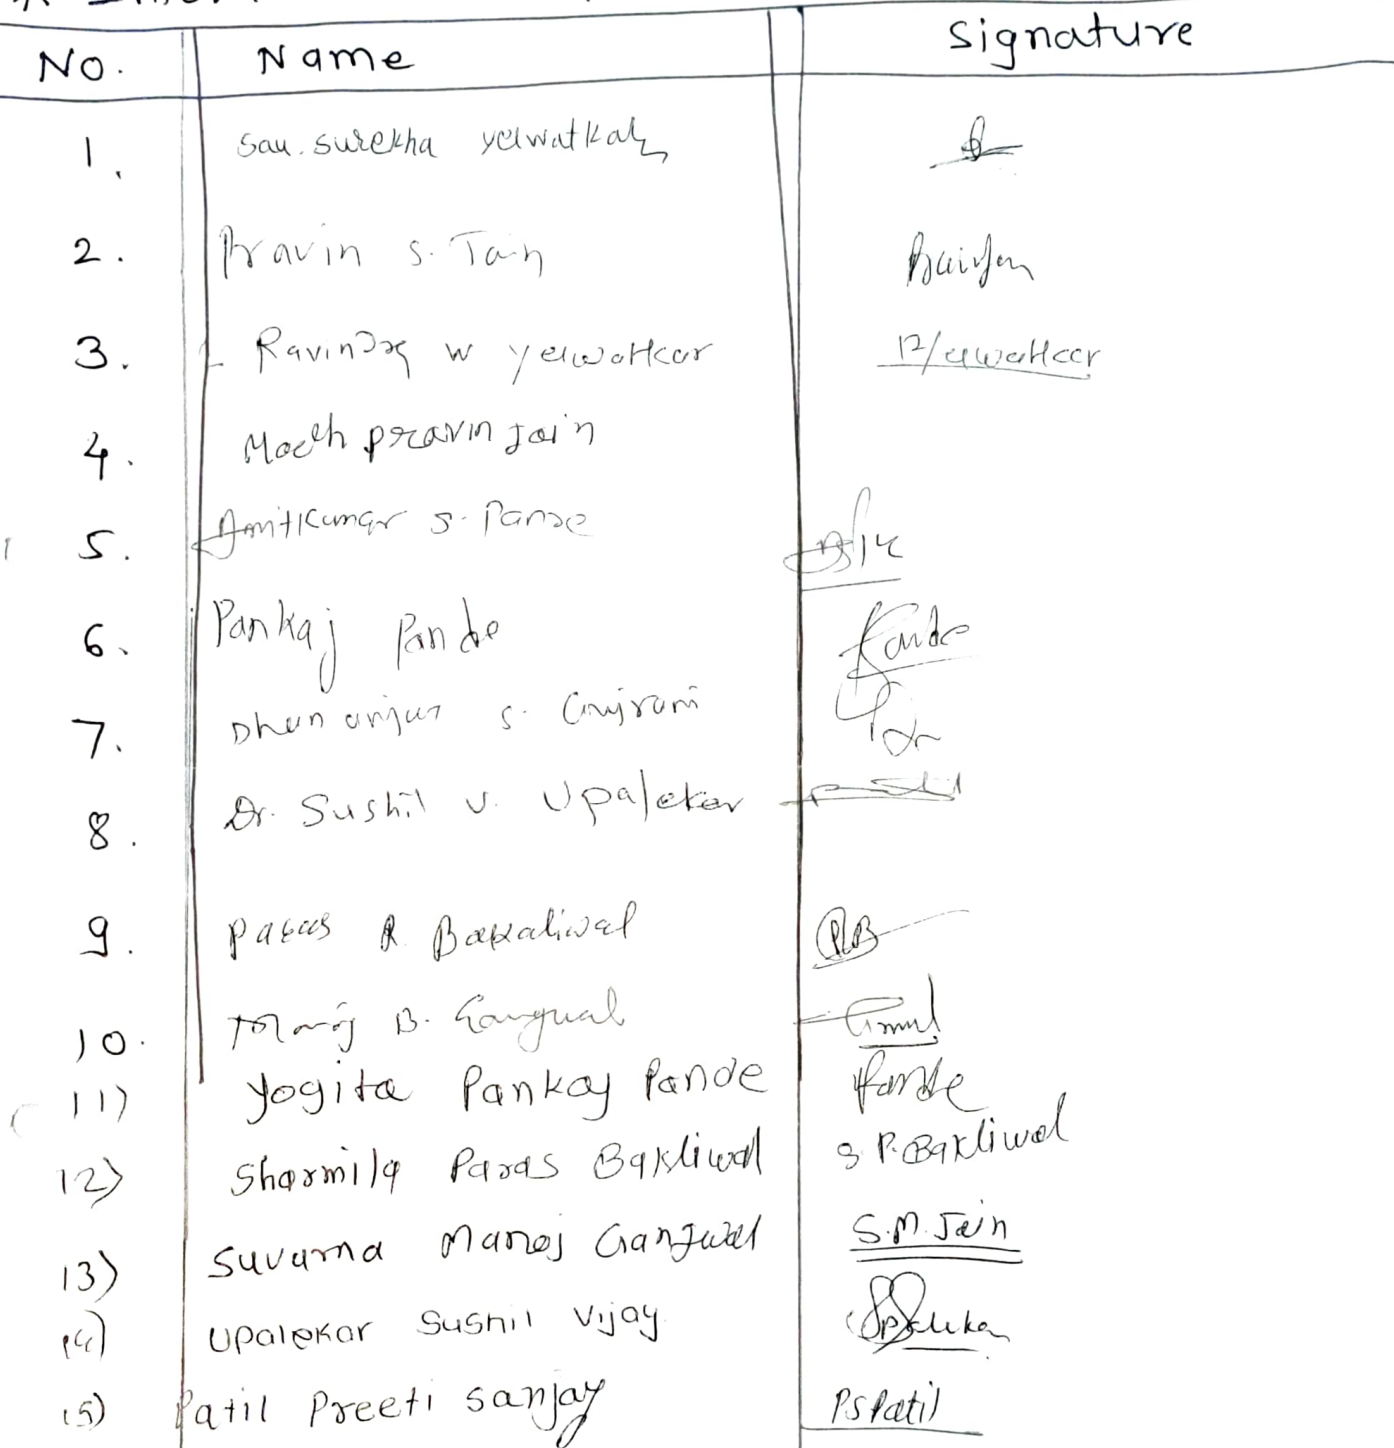 No. Name Signature
1. Sau. Surekha Yelwatkar
2. Pravin S. Jain
3. Ravindra W Yelwatkar R/elwatkar
4. pravin Jain
5. Amitkumar S. Pande
6. Pankaj Pande Pande
7. S.
8. Dr. Sushil V. Upalekar
9. Paras R. Bakaliwal PRB
10. Manoj B. Gangwal
11) Yogita Pankaj Pande Pande
12) Sharmila Paras Bakliwal S. P. Bakliwal
13) Suvarna Manoj Gangwal S.M. Jain
14) Upalekar Sushil Vijay
15) Patil Preeti Sanjay PSPatil